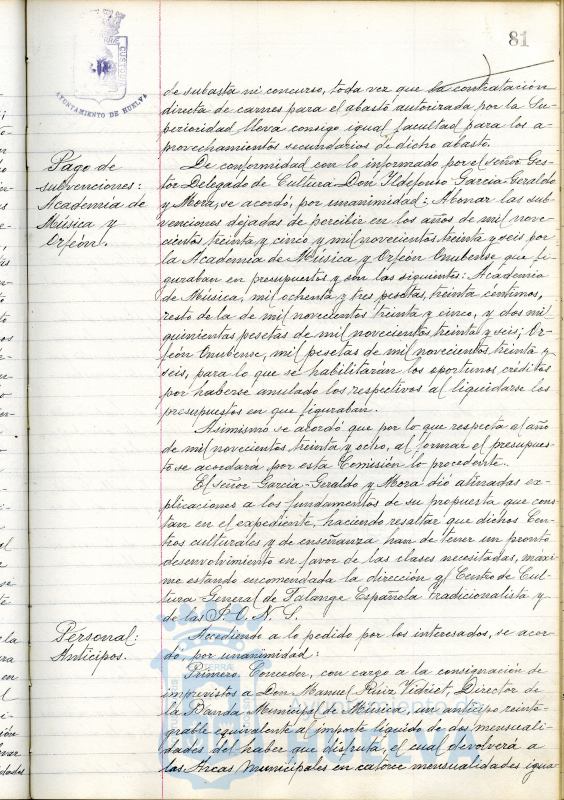 81
AYUNTAMIENTO DE HUELVA
de subasta ni concurso, toda vez que la contratación
directa de carnes para el abasto autorizada por la Su-
perioridad lleva consigo igual facultad para los a-
provechamientos secundarios de dicho abasto.
Pago de
subvenciones:
Academia de
Música y
Orfeón.
De conformidad con lo informado por el señor Ges-
tor Delegado de Cultura Don Ildefonso Garcia-Geraldo
y Mora, se acordó, por unanimidad: Abonar las sub-
venciones dejadas de percibir en los años de mil nove-
cientos treinta y cinco y mil novecientos treinta y seis por
la Academia de Música y Orfeón Onubense que fi-
guraban en presupuestos y son las siguientes: Academia
de Música, mil ochenta y tres pesetas, treinta céntimos,
resto de la de mil novecientos treinta y cinco, y dos mil
quinientas pesetas de mil novecientos treinta y seis; Or-
feón Onubense, mil pesetas de mil novecientos treinta y
seis, para lo que se habilitarán los oportunos creditos
por haberse anulado los respectivos al liquidarse los
presupuestos en que figuraban.
Asimismo se acordó que por lo que respecta al año
de mil novecientos treinta y ocho, al formar el presupues-
to se acordara por esta Comisión lo procedente.
El señor Garcia-Geraldo y Mora dió atinadas ex-
plicaciones a los fundamentos de su propuesta que cons-
tan en el expediente, haciendo resaltar que dichos Cen-
tros culturales y de enseñanza han de tener un pronto
desenvolvimiento en favor de las clases necesitadas, máxi-
me estando encomendada la dirección al Centro de Cul-
tura General de Falange Española Tradicionalista y
de las J.O.N.S.
Personal:
Anticipos.
Accediendo a lo pedido por los interesados, se acor-
dó, por unanimidad:
Primero: Conceder, con cargo a la consignación de
imprevistos a Don Manuel Ruiz Vidriet, Director de
la Banda Municipal de Música, un anticipo reinte-
grable equivalente al importe líquido de dos mensuali-
dades del haber que disfruta, el cual devolverá a
las Arcas Municipales en catorce mensualidades igua-